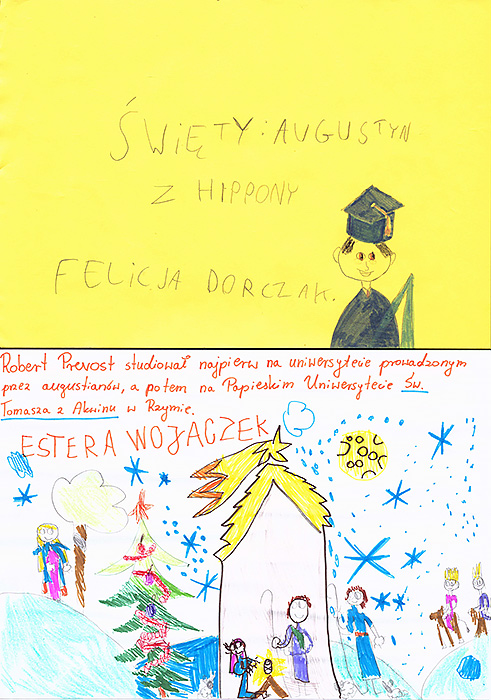 ŚWIĘTY: AUGUSTYN
Z HIPPONY
FELICJA DORCZAK.
Robert Prevost studiował najpierw na uniwersytecie prowadzonym
przez augustianów, a potem na Papieskim Uniwersytecie Św.
Tomasza z Akwinu w Rzymie.
ESTERA WOJACZEK